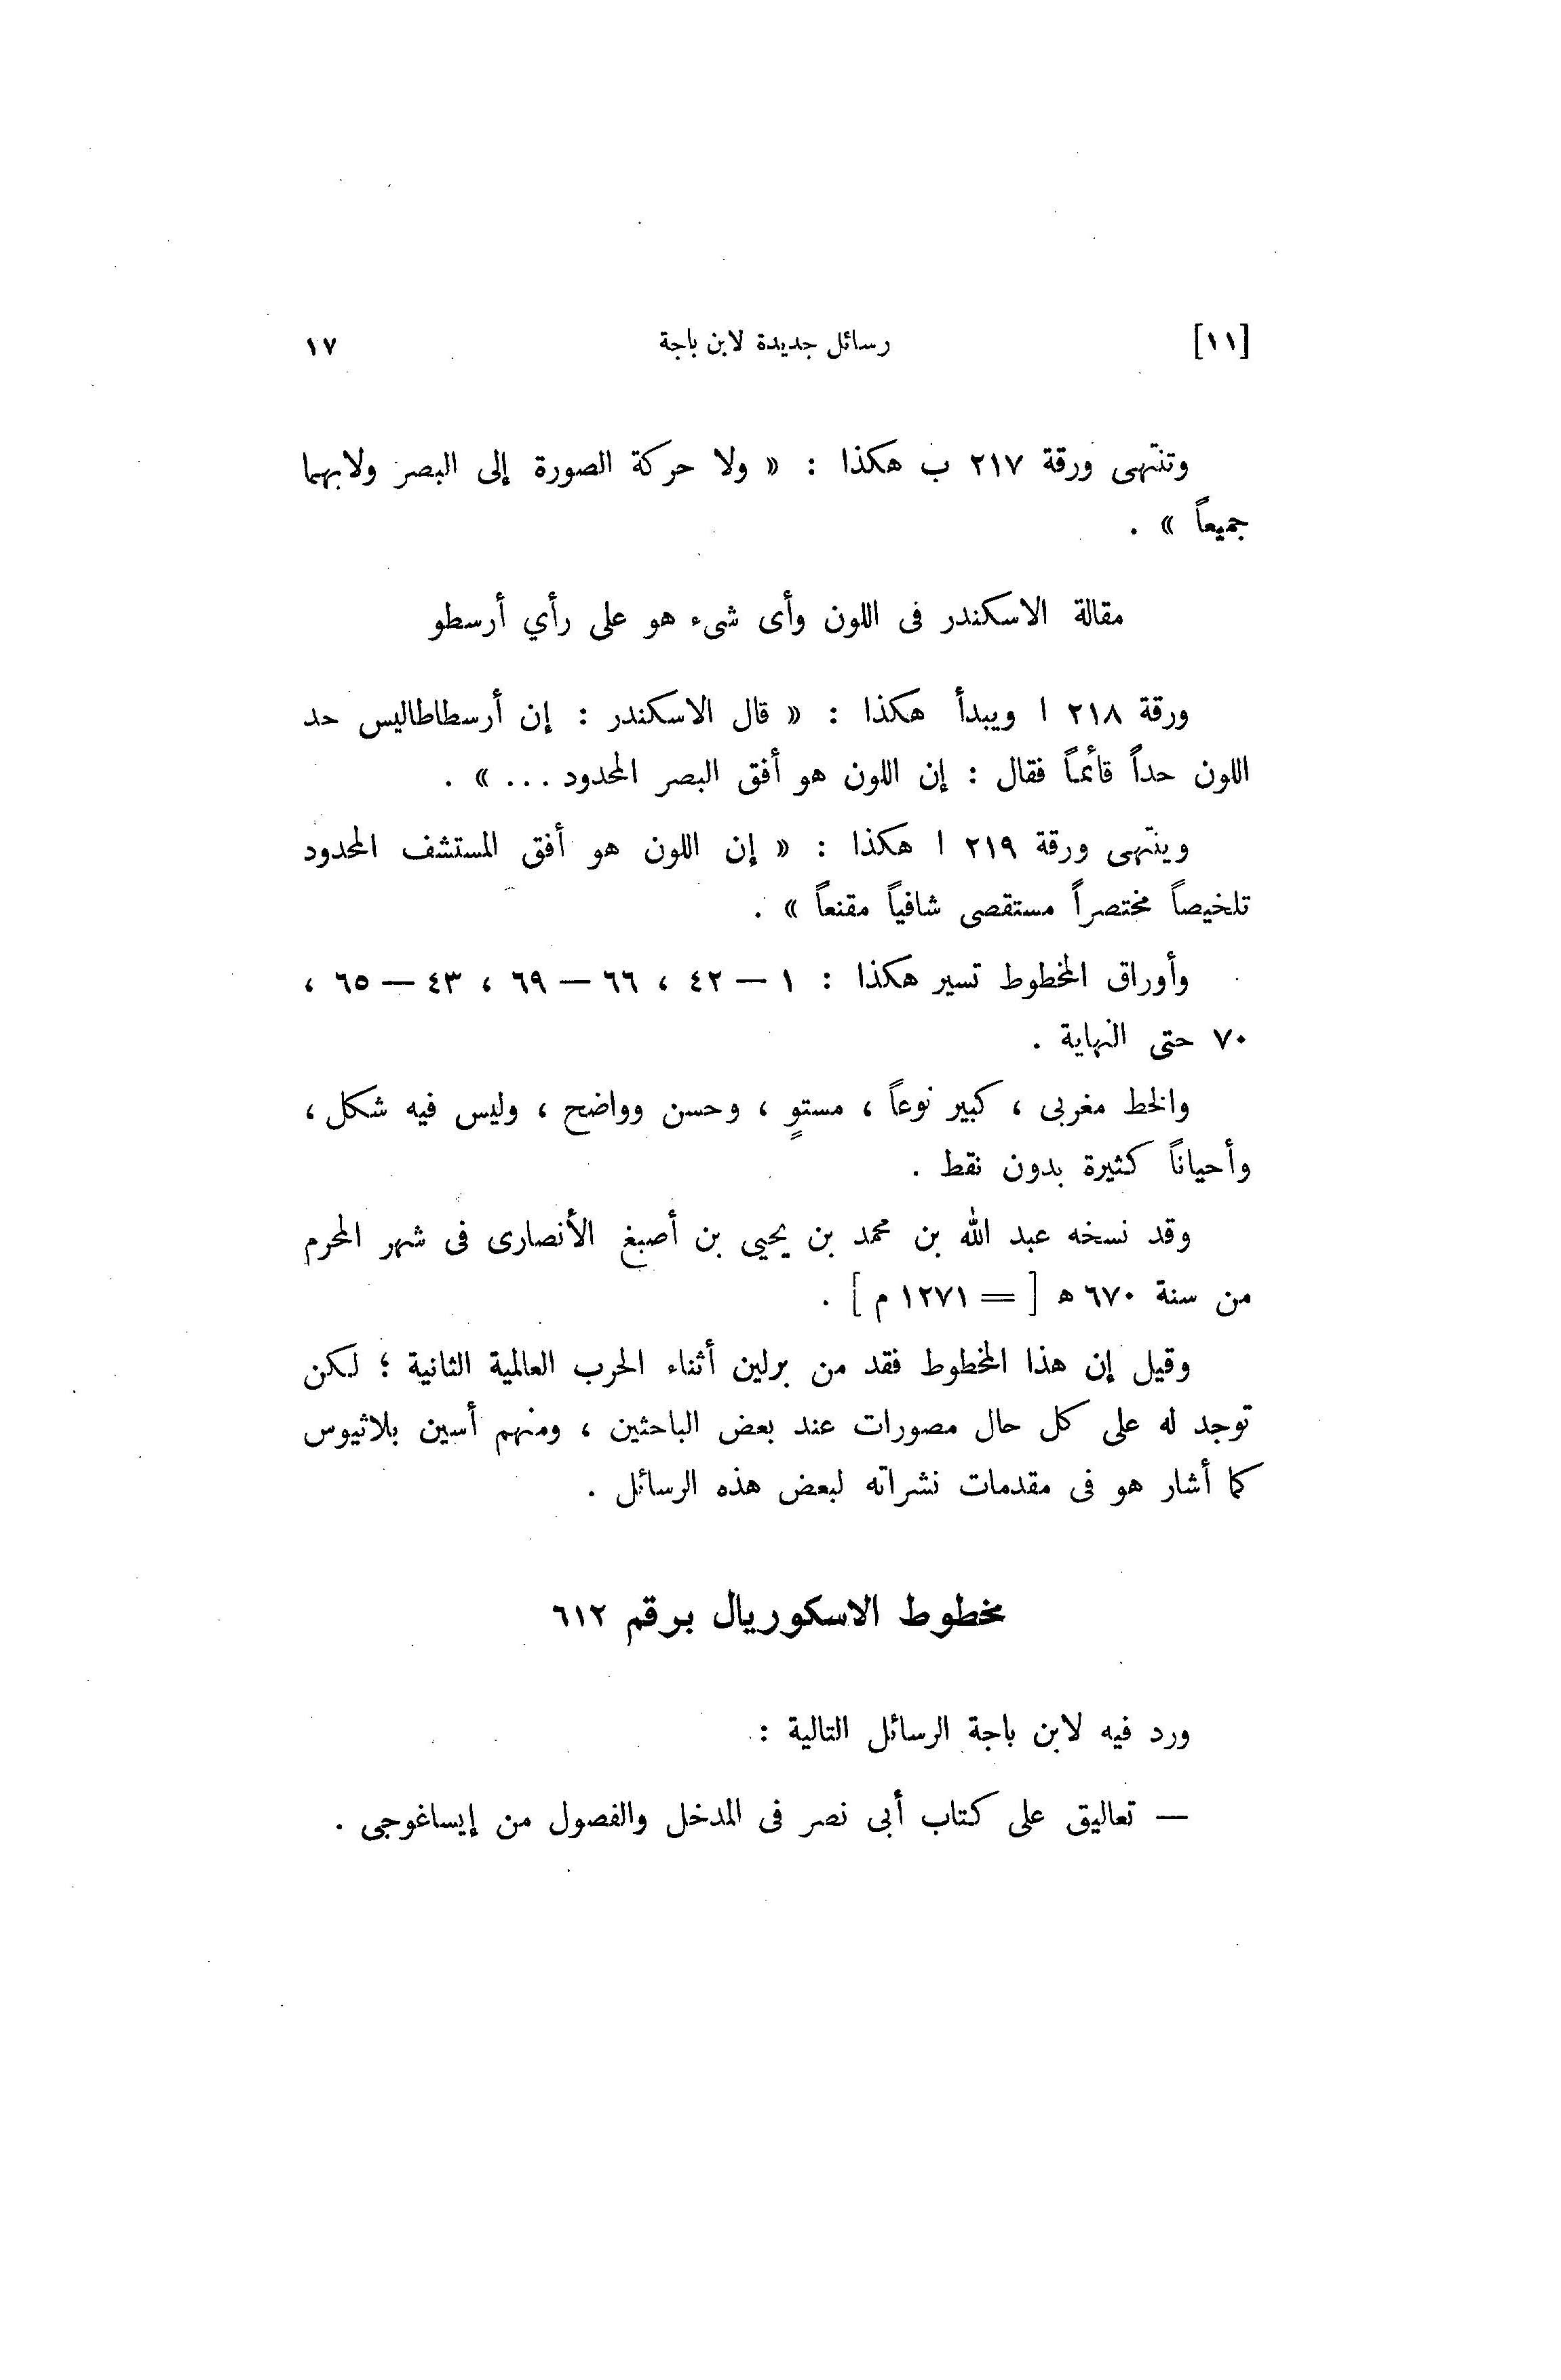 [١١] رسائل جديدة لابن باجة ١٧
وتنتهى ورقة ٢١٧ ب هكذا : « ولا حركة الصورة إلى البصر ولابهما
جميعاً » .
مقالة الاسكندر فى اللون وأى شىء هو على رأي أرسطو
ورقة ٢١٨ ا ويبدأ هكذا : « قال الاسكندر : إن أرسطاطاليس حد
اللون حداً قائماً فقال : إن اللون هو أفق البصر المحدود ... » .
وينتهى ورقة ٢١٩ ا هكذا : « إن اللون هو أفق المستشف المحدود
تلخيصاً مختصراً مستقصى شافياً مقنعاً » .
وأوراق المخطوط تسير هكذا : ١ — ٤٢ ، ٦٦ — ٦٩ ، ٤٣ — ٦٥ ،
٧٠ حتى النهاية .
والخط مغربى ، كبير نوعاً ، مستوٍ ، وحسن وواضح ، وليس فيه شكل ،
وأحياناً كثيرة بدون نقط .
وقد نسخه عبد الله بن محمد بن يحيى بن أصبغ الأنصارى فى شهر المحرم
من سنة ٦٧٠ ه [ = ١٢٧١ م ] .
وقيل إن هذا المخطوط فقد من برلين أثناء الحرب العالمية الثانية ؛ لكن
توجد له على كل حال مصورات عند بعض الباحثين ، ومنهم أسين بلاثيوس
كما أشار هو فى مقدمات نشراته لبعض هذه الرسائل .
مخطوط الاسكوريال برقم ٦١٢
ورد فيه لابن باجة الرسائل التالية :
— تعاليق على كتاب أبى نصر فى المدخل والفصول من إيساغوجى .